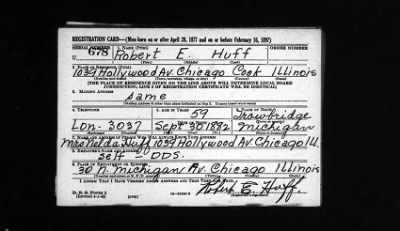 REGISTRATION CARD—(Men born on or after April 28, 1877 and on or before February 16, 1897)
SERIAL NUMBER 1. NAME (Print) ORDER NUMBER
U 678 Robert E. Huff
(First) (Middle) (Last)
2. PLACE OF RESIDENCE (Print)
1039 Hollywood Av. Chicago Cook Illinois
(Number and street) (Town, township, village, or city) (County) (State)
[THE PLACE OF RESIDENCE GIVEN ON THE LINE ABOVE WILL DETERMINE LOCAL BOARD
JURISDICTION; LINE 2 OF REGISTRATION CERTIFICATE WILL BE IDENTICAL]
3. MAILING ADDRESS
Same
[Mailing address if other than place indicated on line 2. If same insert word same]
4. TELEPHONE 5. AGE IN YEARS 6. PLACE OF BIRTH
59 Trowbridge
Lon. 3037 Sept 30 1882 Michigan
7. NAME AND ADDRESS OF PERSON WHO WILL ALWAYS KNOW YOUR ADDRESS
Mrs Nelda Huff 1039 Hollywood Av. Chicago Ill.
8. EMPLOYER'S NAME AND ADDRESS
Self DDS.
9. PLACE OF EMPLOYMENT OR BUSINESS
30 N. Michigan Av. Chicago Illinois
(Number and street or R. F. D. number) (Town) (County) (State)
I AFFIRM THAT I HAVE VERIFIED ABOVE ANSWERS AND THAT THEY ARE TRUE.
D. S. S. Form 1
(Revised 4-1-42) (over)
Robert E. Huff.